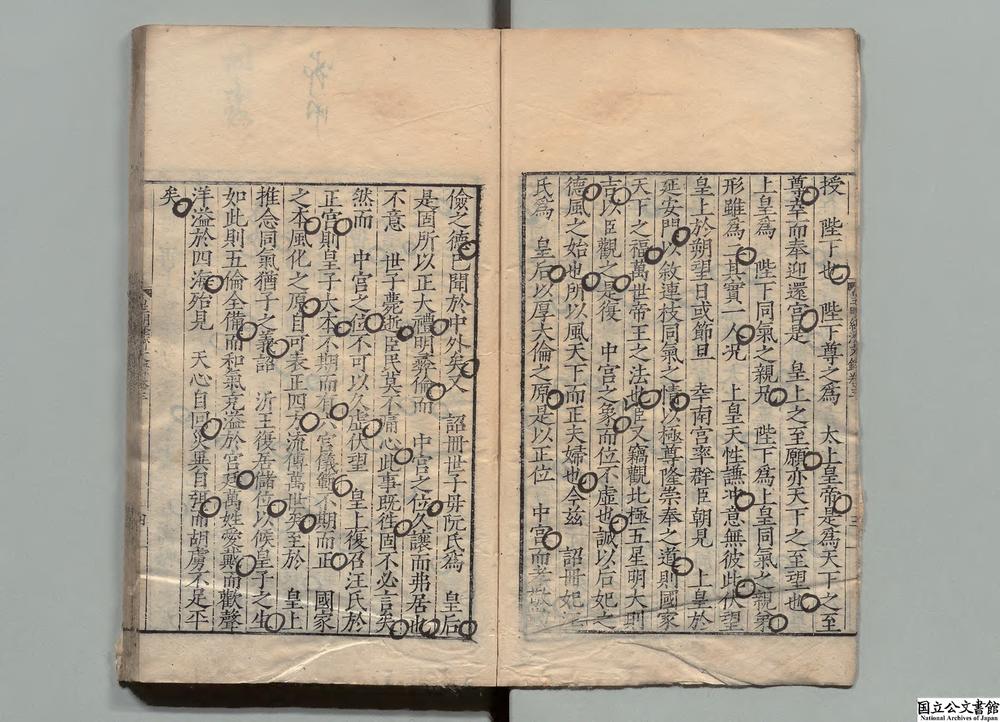 授 陛下也 陛下尊之為 太上皇帝是為天下之至
尊幸而奉迎還宮是 皇上之至願亦天下之至望也
上皇為 陛下同氣之親兄 陛下為上皇同氣之親弟
形雖為二其實一人况 上皇天性謙冲意無彼此伏望
皇上於朔望日或節旦 幸南宮率群臣朝見 上皇於
延安門以敘連枝同氣之情以極尊隆崇奉之道則國家
天下之福萬世帝王之法也臣又竊觀北極五星明大則
吉以臣觀之是復 中宮之象而位不虛也誠以后妃之
德風之始也所以風天下而正夫婦也今茲 詔冊妃汪
氏為 皇后以厚大倫之原是以正位 中宮而孝敬
儉之德已聞於中外矣又 詔冊世子母阮氏為 皇后
是固所以正大禮明彛倫而 中宮之位久讓而弗居也
不意 世子薨逝臣民莫不痛心此事既徃固不必言矣
然而 中宮之位不可以久虛伏望 皇上復召汪氏於
正宮則皇子大本不期而有六宮儀範不期而正 國家
之本風化之原自可表正四方流傳萬世矣至於 皇上
推念同氣猶子之義詔 沂王復居儲位以候皇子之生
如此則五倫全備而和氣充溢於宮廷萬姓愛戴而歡聲
洋溢於四海殆見 天心自回災異自弭而胡虜不足平
矣
四
国立公文書館
National Archives of Japan